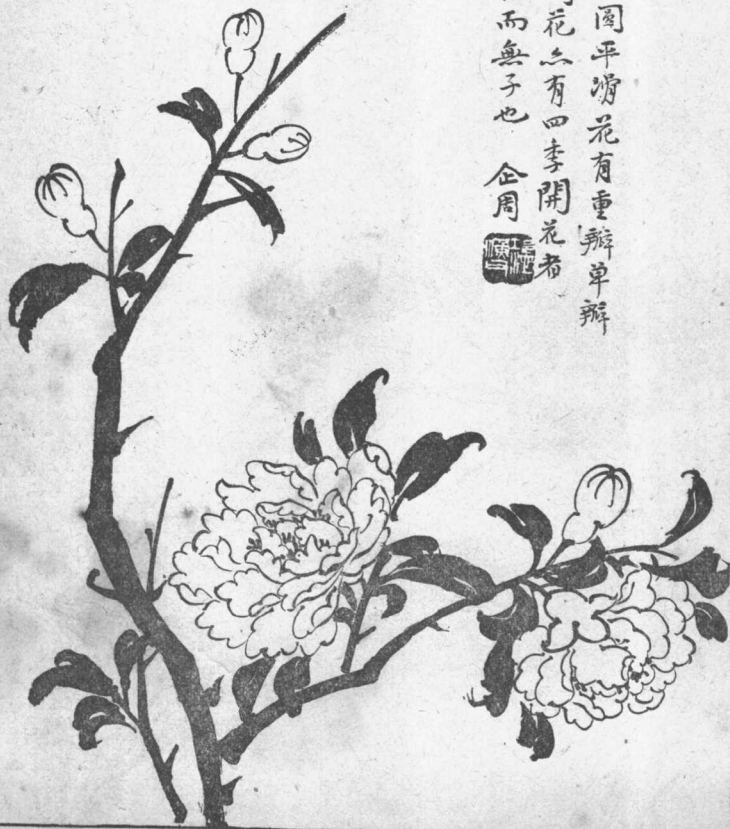 圓平滑花有重瓣單瓣
花亦有四季開花者
而無子也 企周